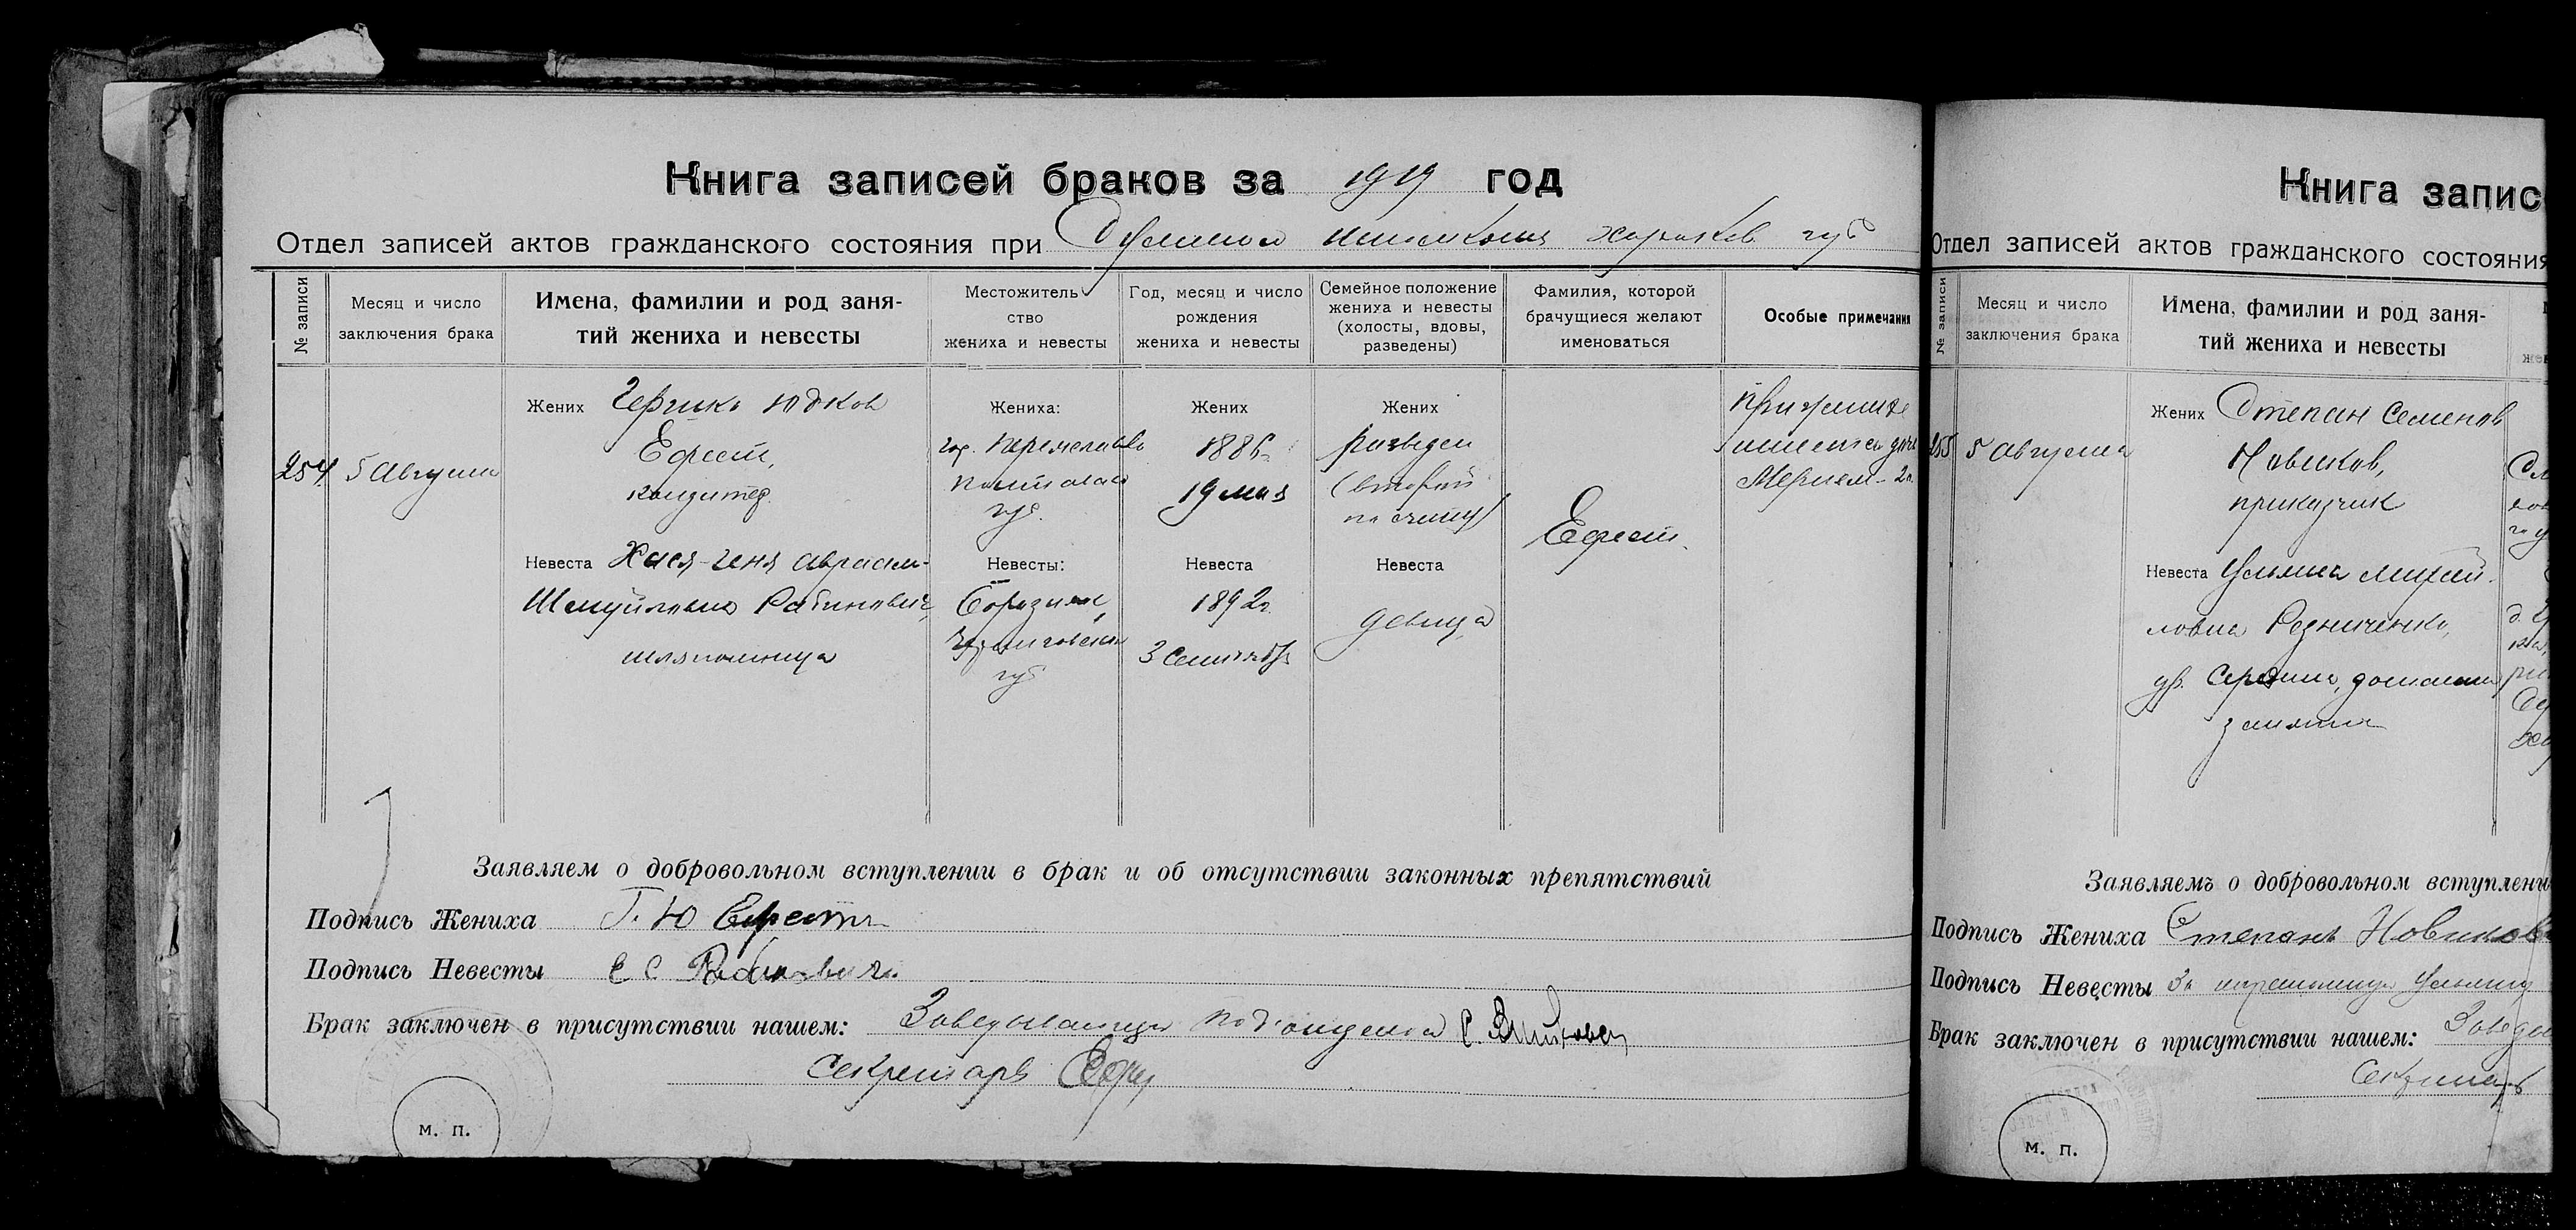 Книга записей браков за 1919 год
Отдел записей актов гражданского состояния при Харьков губ
№ записи
Месяц и число заключения брака
Имена, фамилии и род заня-
тий жениха и невесты
Местожитель
ство
жениха и невесты
Год, месяц и число
рождения
жениха и невесты
Семейное положение
жениха и невесты
(холосты, вдовы,
разведены)
Фамилия, которой
брачущиеся желают
именоваться
Особые примечания
254
5 Августа
Жених Юдков
Ефрет,
кондитер.
Невеста Хася-Геня Авраам-
Шмуйловна Рабинович,
шляпочница
Жениха:
гор. Переяславль
Полтавск
губ.
Невесты:
Борозна,
Черниговской
губ
Жених
1886
19 мая
Невеста
1892г.
3 Сентябр
Жених
разведен
(второй
по счету)
Невеста
девица
Ефрет.
При жених
имеется дочь
Мериам - 2л.
Заявляем о добровольном вступлении в брак и об отсутствии законных препятствий
Подпись Жениха Г. Ю Ефретъ
Подпись Невесты Е С Рабиновичъ
Брак заключен в присутствии нашем: Заведывающий Под'отделом С.
Секретарь
М. П.
Книга запис
Отдел записей актов гражданского состояния
№ записи
Месяц и число
заключения брака
Имена, фамилии и род заня-
тий жениха и невесты
255
5 Августа
Жених Степан Семенов
Новиков,
приказчик
Невеста Ульяна Михай-
ловна Резниченко,
домашни
занятия
Заявляемъ о добровольном вступлени
Подпись Жениха Степанъ Новиковъ
Подпись Невесты За неграмотную Ульяну
Брак заключен в присутствии нашем: Заведы
Секретарь
М. П.